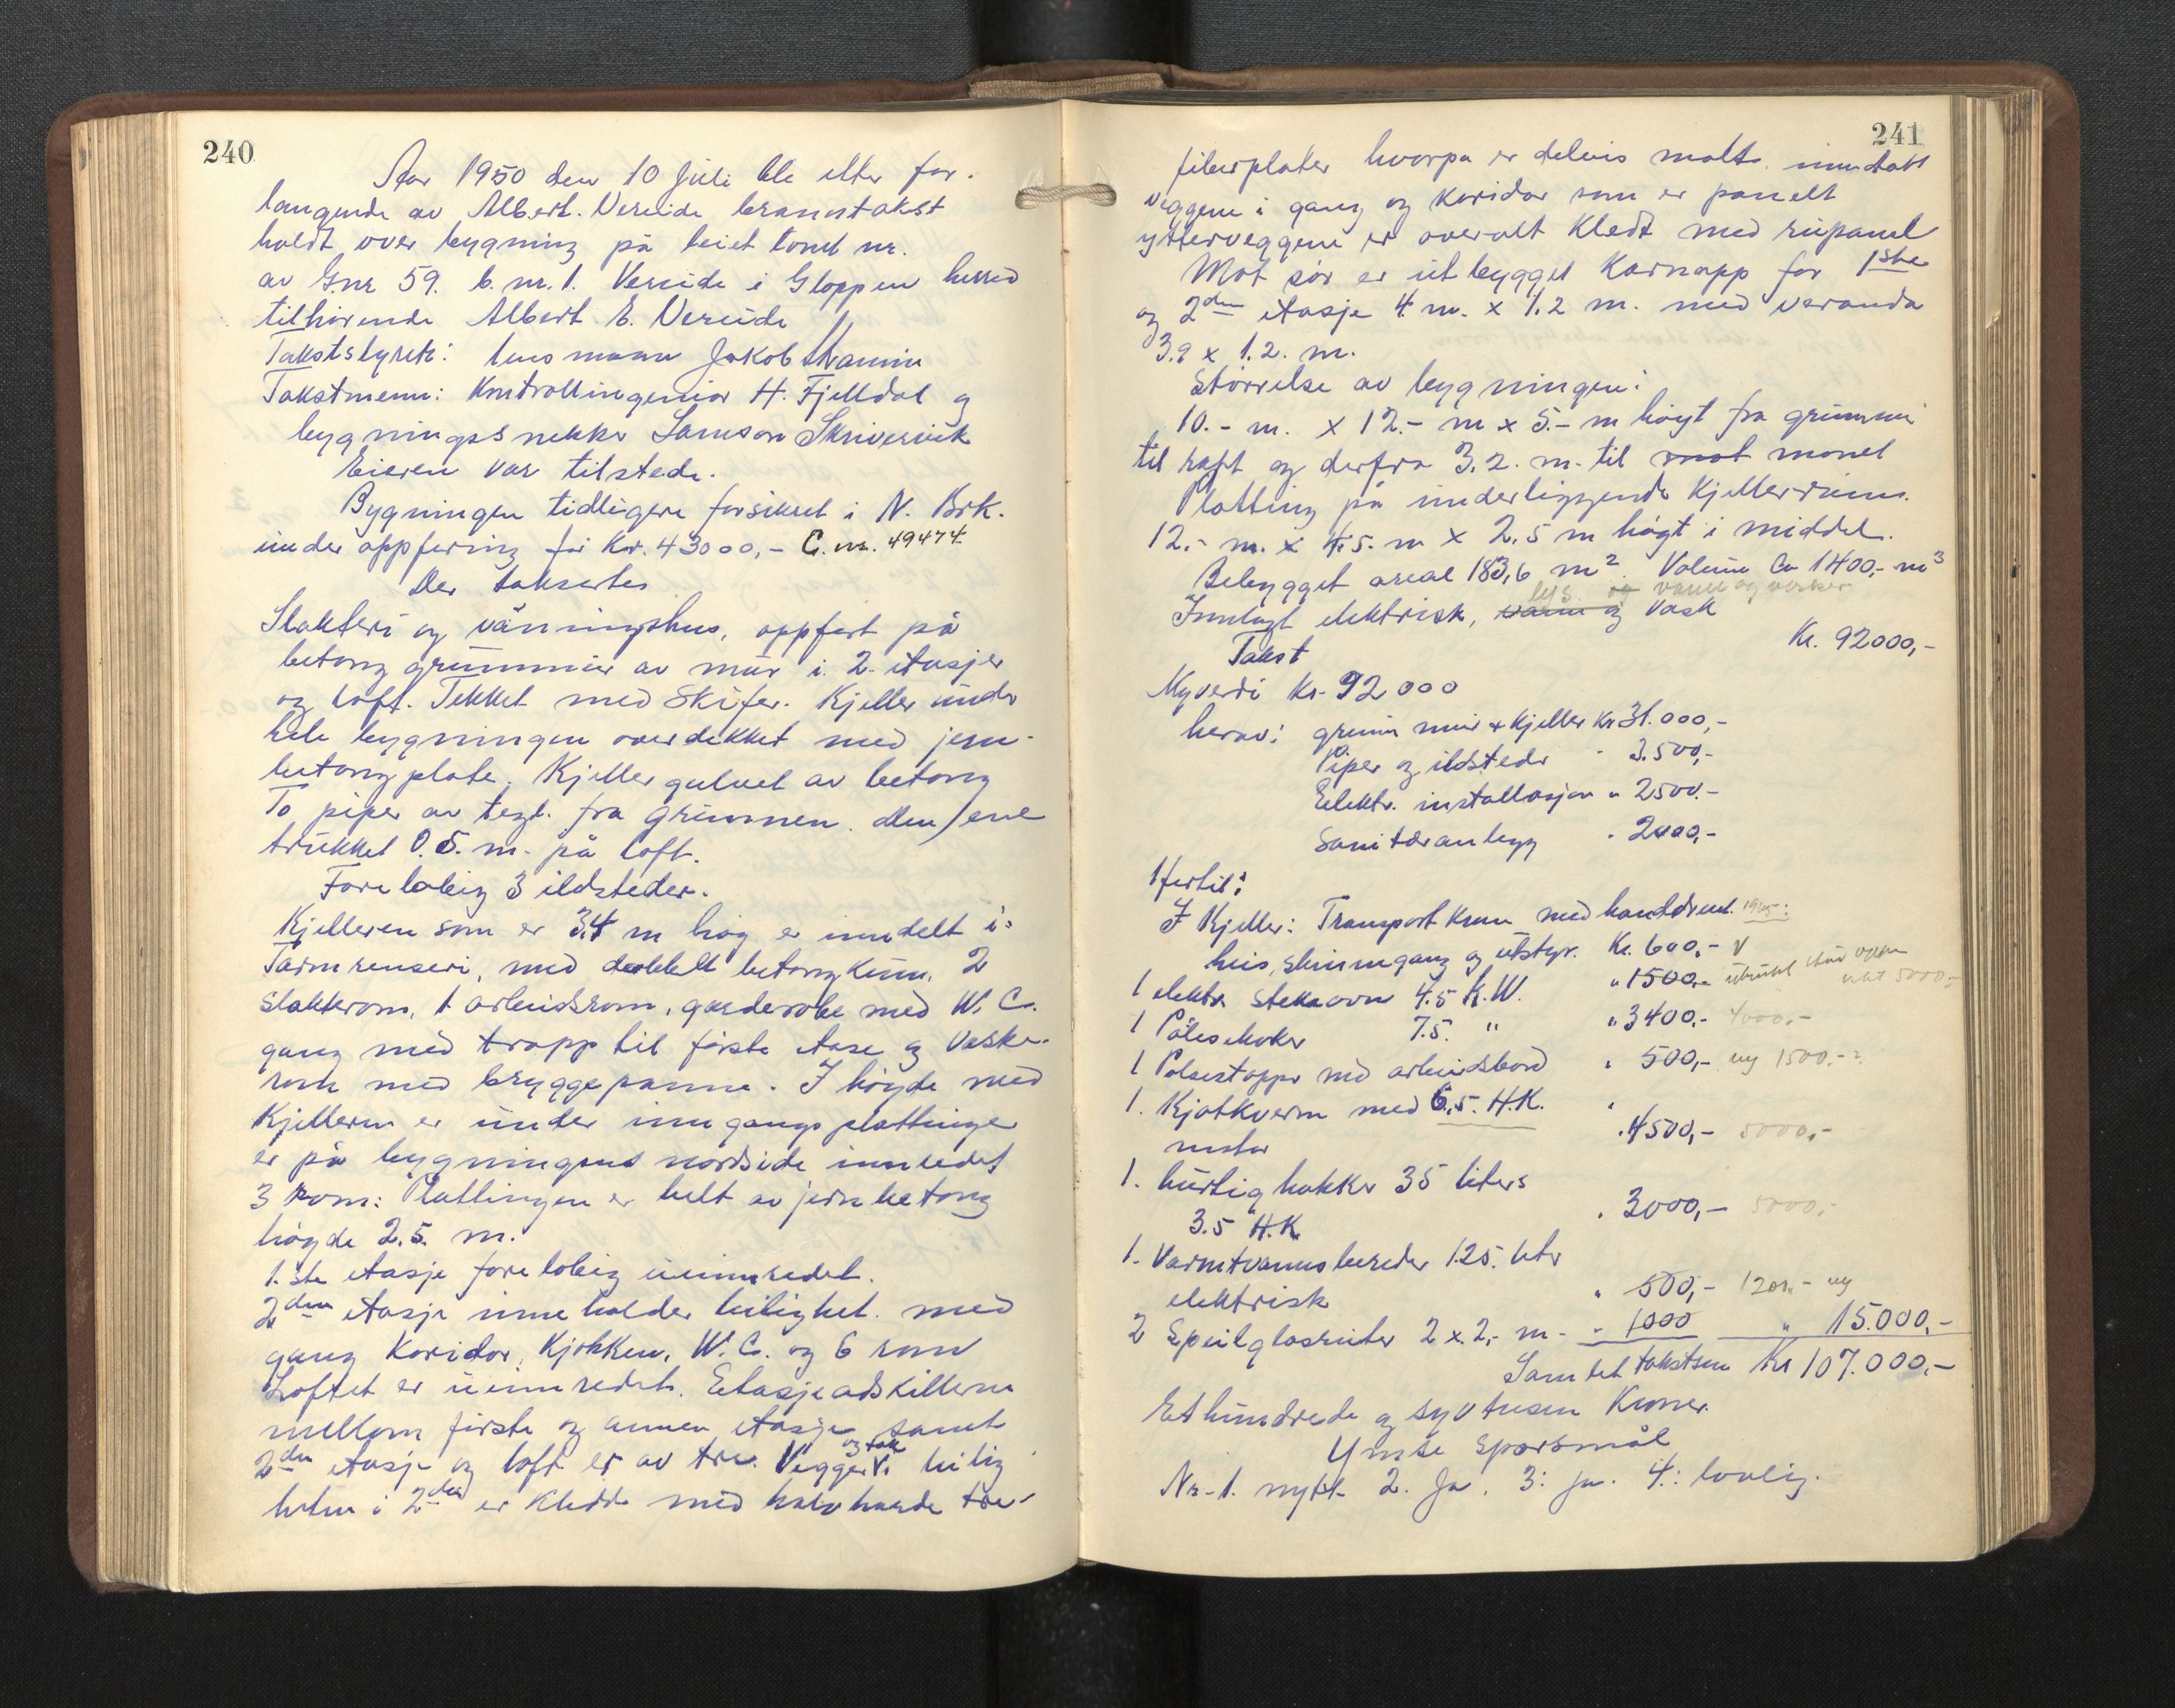 240
Aar 1950 den 10 Juli ble etter for-
langende av Albert Vereide branntakst
holdt over bygning på leiet tomt nr.
av G.nr 59. b.nr. 1. Vereide i Gloppen herred
tilhørende Albert E. Vereide
Takststyrer: lensmann Jakob
Takstmenn: Kontrollingeniør H. Fjelldal og
bygningssnekker Samson Skrivervik
Eieren var tilstede.
Bygningen tidligere forsikret i N. Brk.
under oppføring for Kr. 43000,- C. nr. 49474.
Der taksertes
Slakteri og våningshus, oppført på
betong grunnmur av mur i 2. etasjer
og loft. Tekket med Skifer. Kjeller under
hele bygningen overdekket med jern-
betong plate. Kjellergulvet av betong
To piper av tegl. fra grunnen. den ene
trukket 0.5. m. på loft.
Foreløbig 3 ildsteder.
Kjelleren som er 3,4 m høg er inndelt i:
Tarmrenseri, med dobbelt betongkum, 2
slakterom, 1 arbeidsrom, garderobe med W.C.
gang med trapp til første etase og vaske-
rom med bryggepanne. I høyde med
Kjelleren er under inngangsplattinger
er på bygningens nordside innredet
3 Rom: Plattingen er helt av jernbetong
høyde 2.5. m.
1.ste etasje foreløbig uinnredet.
2den etasje inneholder leilighet med
gang Koridor, Kjøkken, W.C. og 6 rom
Loftet er uinnredet. Etasjeadskillerne
mellom første og annen etasje samt
2den etasje og loft er av tre. Vegger og tak i leilig
heten i 2den er kledd med halvharde tre-
241
fiberplater hvorpa er delvis malt. inndtatt
veggene i gang og Koridor som er panelt
ytterveggene er overalt Kledt med rupanel
Mot sør er utbygget Karnapp for 1ste
og 2den etasje 4 m. x 1.2 m. med veranda
3.9 x 1.2. m.
Størrelse av bygningen:
10.- m. x 12.- m x 5.- m høgt fra grunnmur
til raft og derfra 3.2. m. til mot mønet
Platting på underliggende Kjellerrum.
12.- m. x 4.5. m x 2.5 m høgt i middel.
Bebygget areal 183,6 m2. Volum Ca 1400,- m3
lys og varme og vasker
Innlagt elektrisk, varme og vask
Takst Kr. 92000,-
Nyverdi Kr. 92 000
herav: grunn mur + kjeller Kr 31.000,-
Piper og ildsteder " 3.500,-
Elektr. installasjon " 2500.-
Sanitæranlegg " 2000,-
Hertil:
I Kjeller: Transport Kran med handdrevet 1965:
heis, skinnegang og utstyr. Kr. 600.- V
1 elektr. stekeovn 4.5 K.W. " 1500.- 5000,-
1 Pølsekoker 7.5. " " 3400.- 4000.-
1 Pølsestopper med arbeidsbord " 500,- ny 1500.-?
1. Kjøtkvern med 6,5. H.K. "
motor " 4500,- 5000,-
1. hurtighakker 35 liters
3.5 H.K. " 3000,- 5000,-
1. Varmtvannsbereder 125. liter
elektrisk " 500,- 1200,- ny
2 Speilglasruter 2 x 2,- m - " 1000 " 15.000,-
Samlet takstsum Kr 107.000,-
Ethundrede og syvtusen Kroner.
Ymse spørsmål
Nr. 1. nytt 2. Ja. 3: Ja. 4.: lovlig.